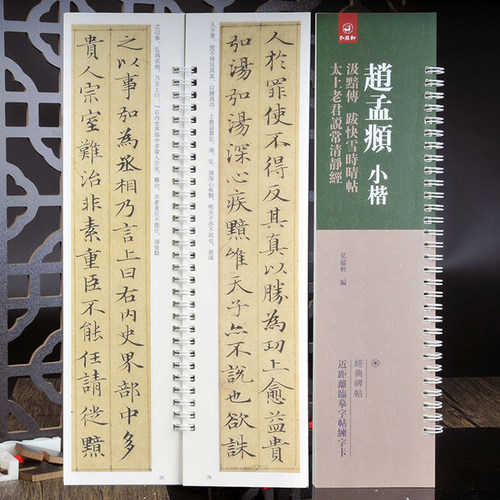 趙孟頫 小楷
汲黯傳 跋快雪時晴帖
太上老君説常清靜經
弘蘊軒 編
經典碑帖
近距離臨摹字帖練字卡
人於罪使不得反其真以勝為功上愈益貴
弘湯弘湯深心疾黯雖天子亦不說也欲誅
之以事弘為丞相乃言上曰右內史界部中多
貴人宗室難治非素重臣不能任請徙黯